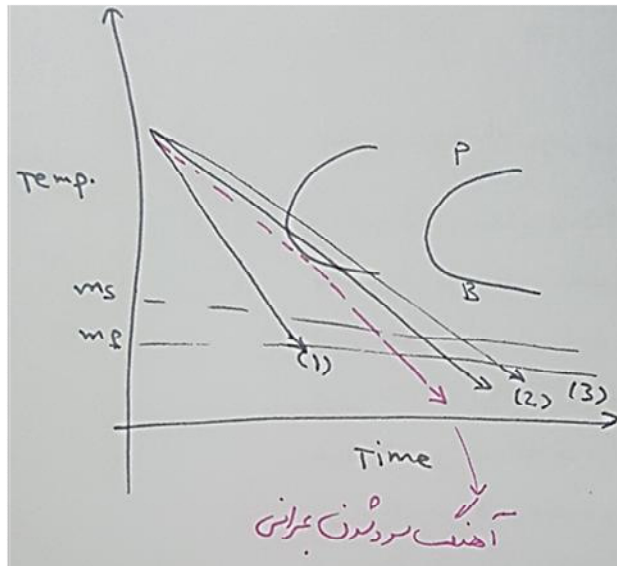 Temp.
P
B
ms
mf
(1)
(2)
(3)
Time
آهنگ سرد شدن بحرانی